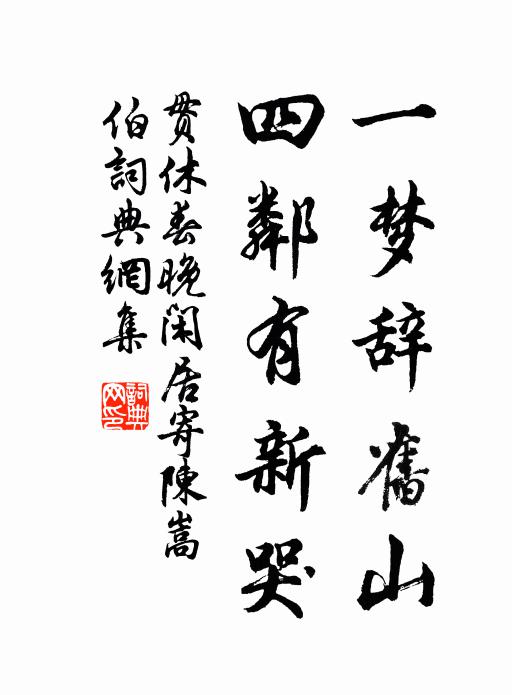 一梦辞舊山
四鄰有新哭
贯休春晚閑居寄陳嵩
伯詞典網集
詞典
网印